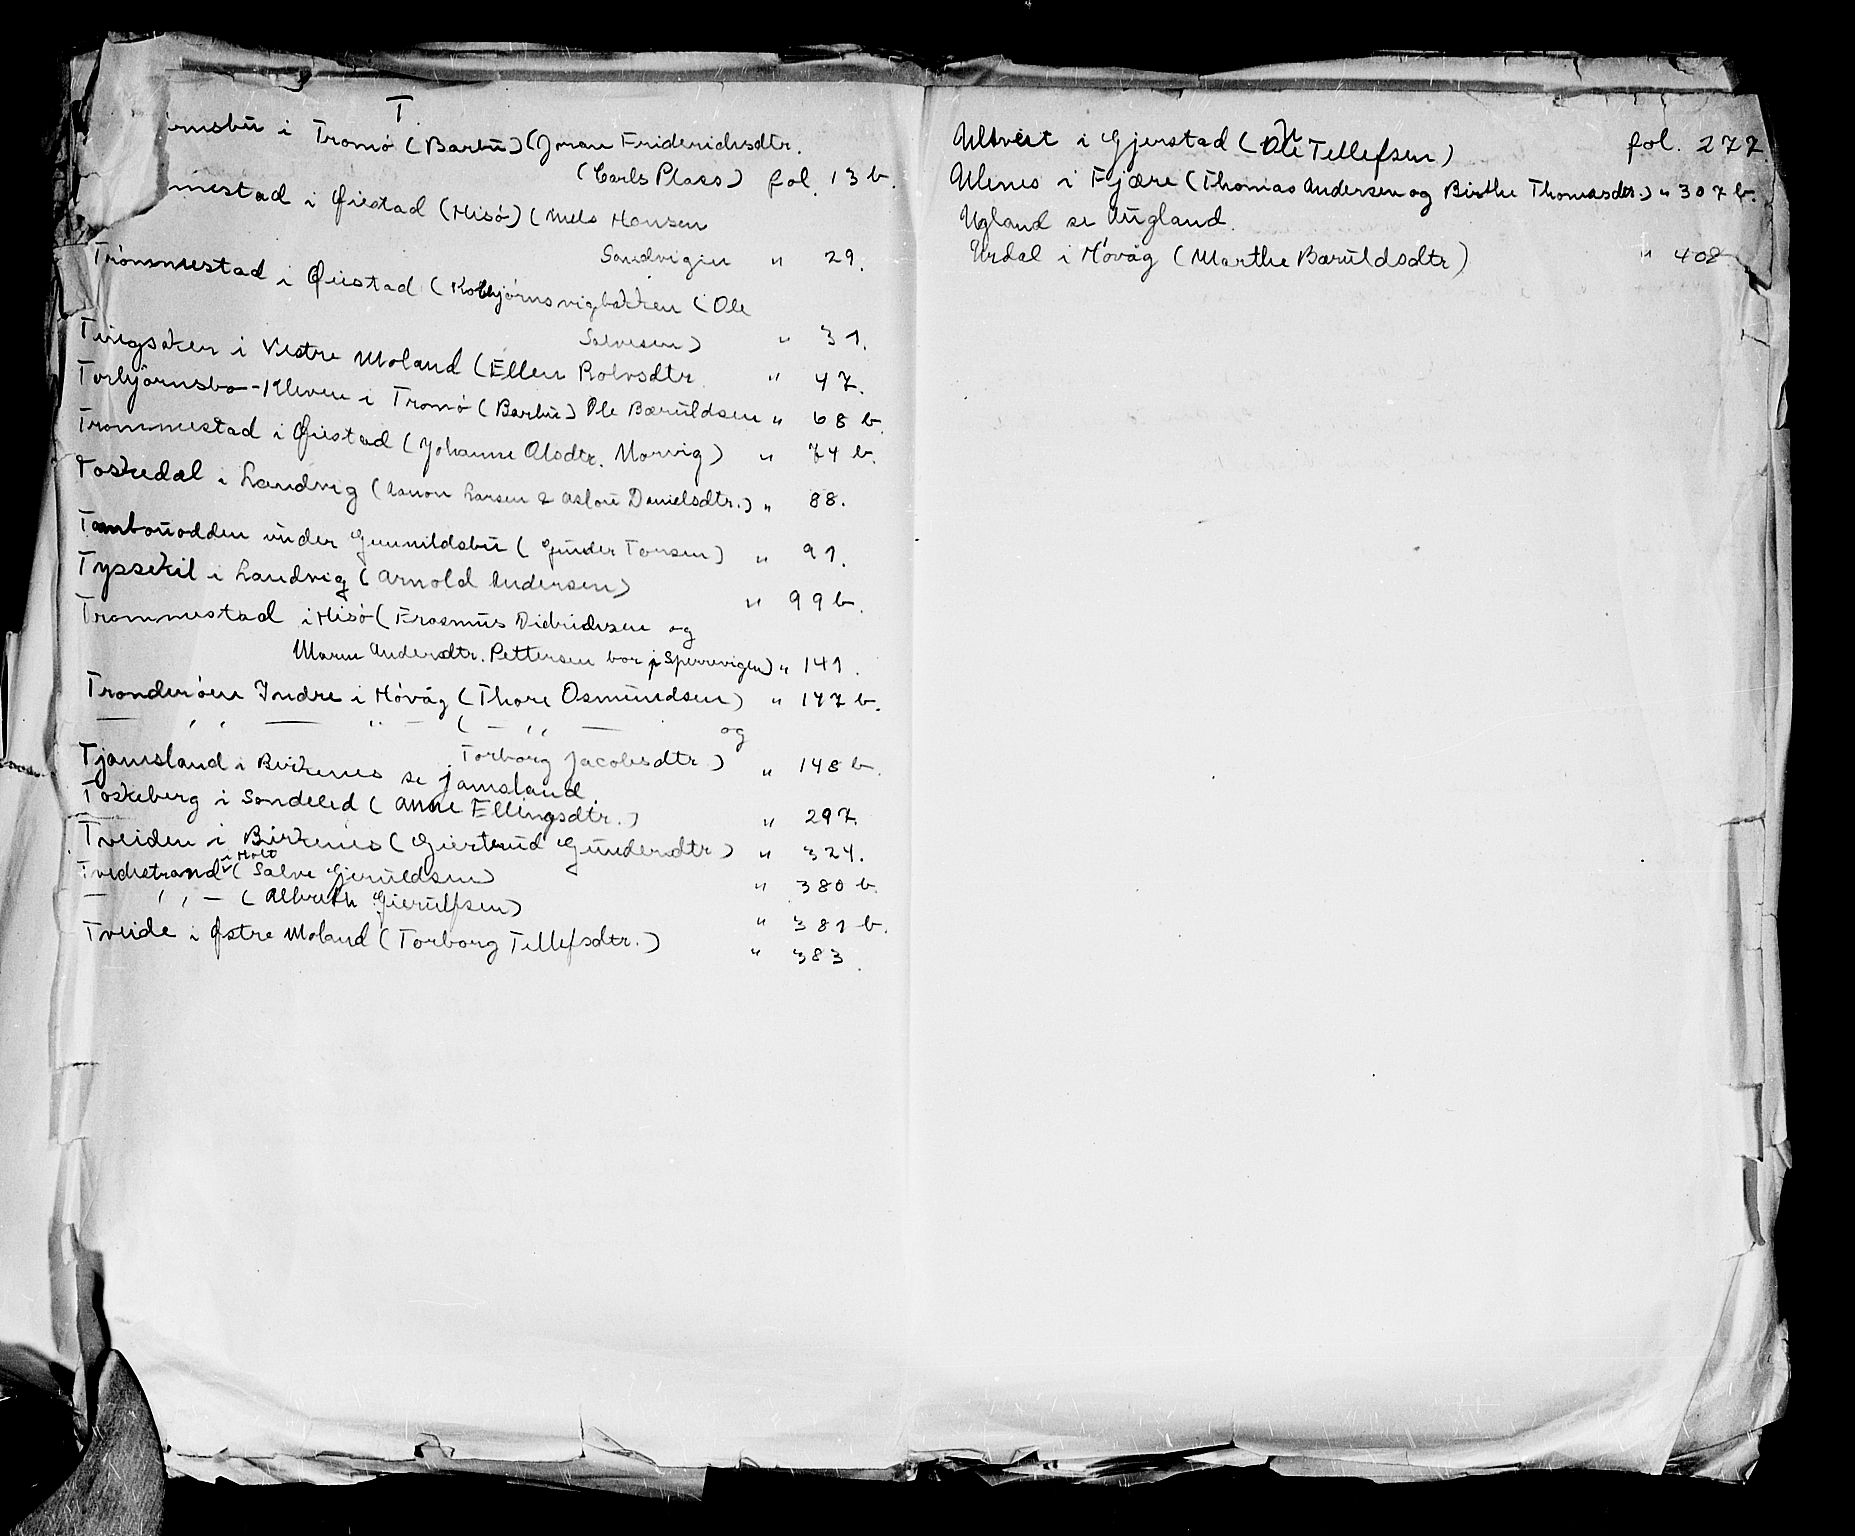 T.
i Tromø (Barbu) (Joran Friderichsdtr.
(Carls Plass) fol. 13 b.
mestad i Øiestad (Hisø) (Niels Hansen
Sandvigin " 29.
Trommestad i Øiestad (Kolbjørnsvigbakken (Ole
Salvesen) " 31.
Tingsaker i Vestre Moland (Ellen Rolvsdtr. " 47.
Torbjørnsbo-Kleven i Tromø (Barbu) Ole Bæruldsen " 68 b.
Trommestad i Øiestad (Johanne Olsdtr. Narvig) " 74 b.
Toskedal i Landvig (Aanon Larsen & Aslou Danielsdtr.) " 88.
Tambouodden under Gunnildsbu (Gunder Torsen) " 91.
Tyssekil i Landvig (Arnold Andersen) " 99 b.
Trommestad i Hisø (Erasmus Didrichsen og
Maren Andersdtr. Pettersen bor på Sperrevigen) " 141.
Trondeøen Indre i Høvåg (Thore Osmundsen) " 147 b.
— ,, — " — ( — ,, — og
Torborg Jacobsdtr.) " 148 b.
Tjamsland i Birkenes se Jamsland
Toskeberg i Søndeled (Anne Ellingsdtr.) " 297.
Tveiden i Birkenes (Giertrud Gundersdtr) " 324.
Tvedestrand i Holt (Salve Gjeruldsen) " 380 b.
— ,, — (Albreth Gierulfsen) " 381 b.
Tveide i Østre Moland (Torborg Tellefsdtr.) " 383.
Ulltveit i Gjerstad (Ole Tellefsen) fol. 277.
Ulenes i Fjære (Thomas Andersen og Birthe Thomasdtr.) " 307 b.
Ugland se Augland.
Urdal i Høvåg (Marthe Bæruldsdtr) " 408